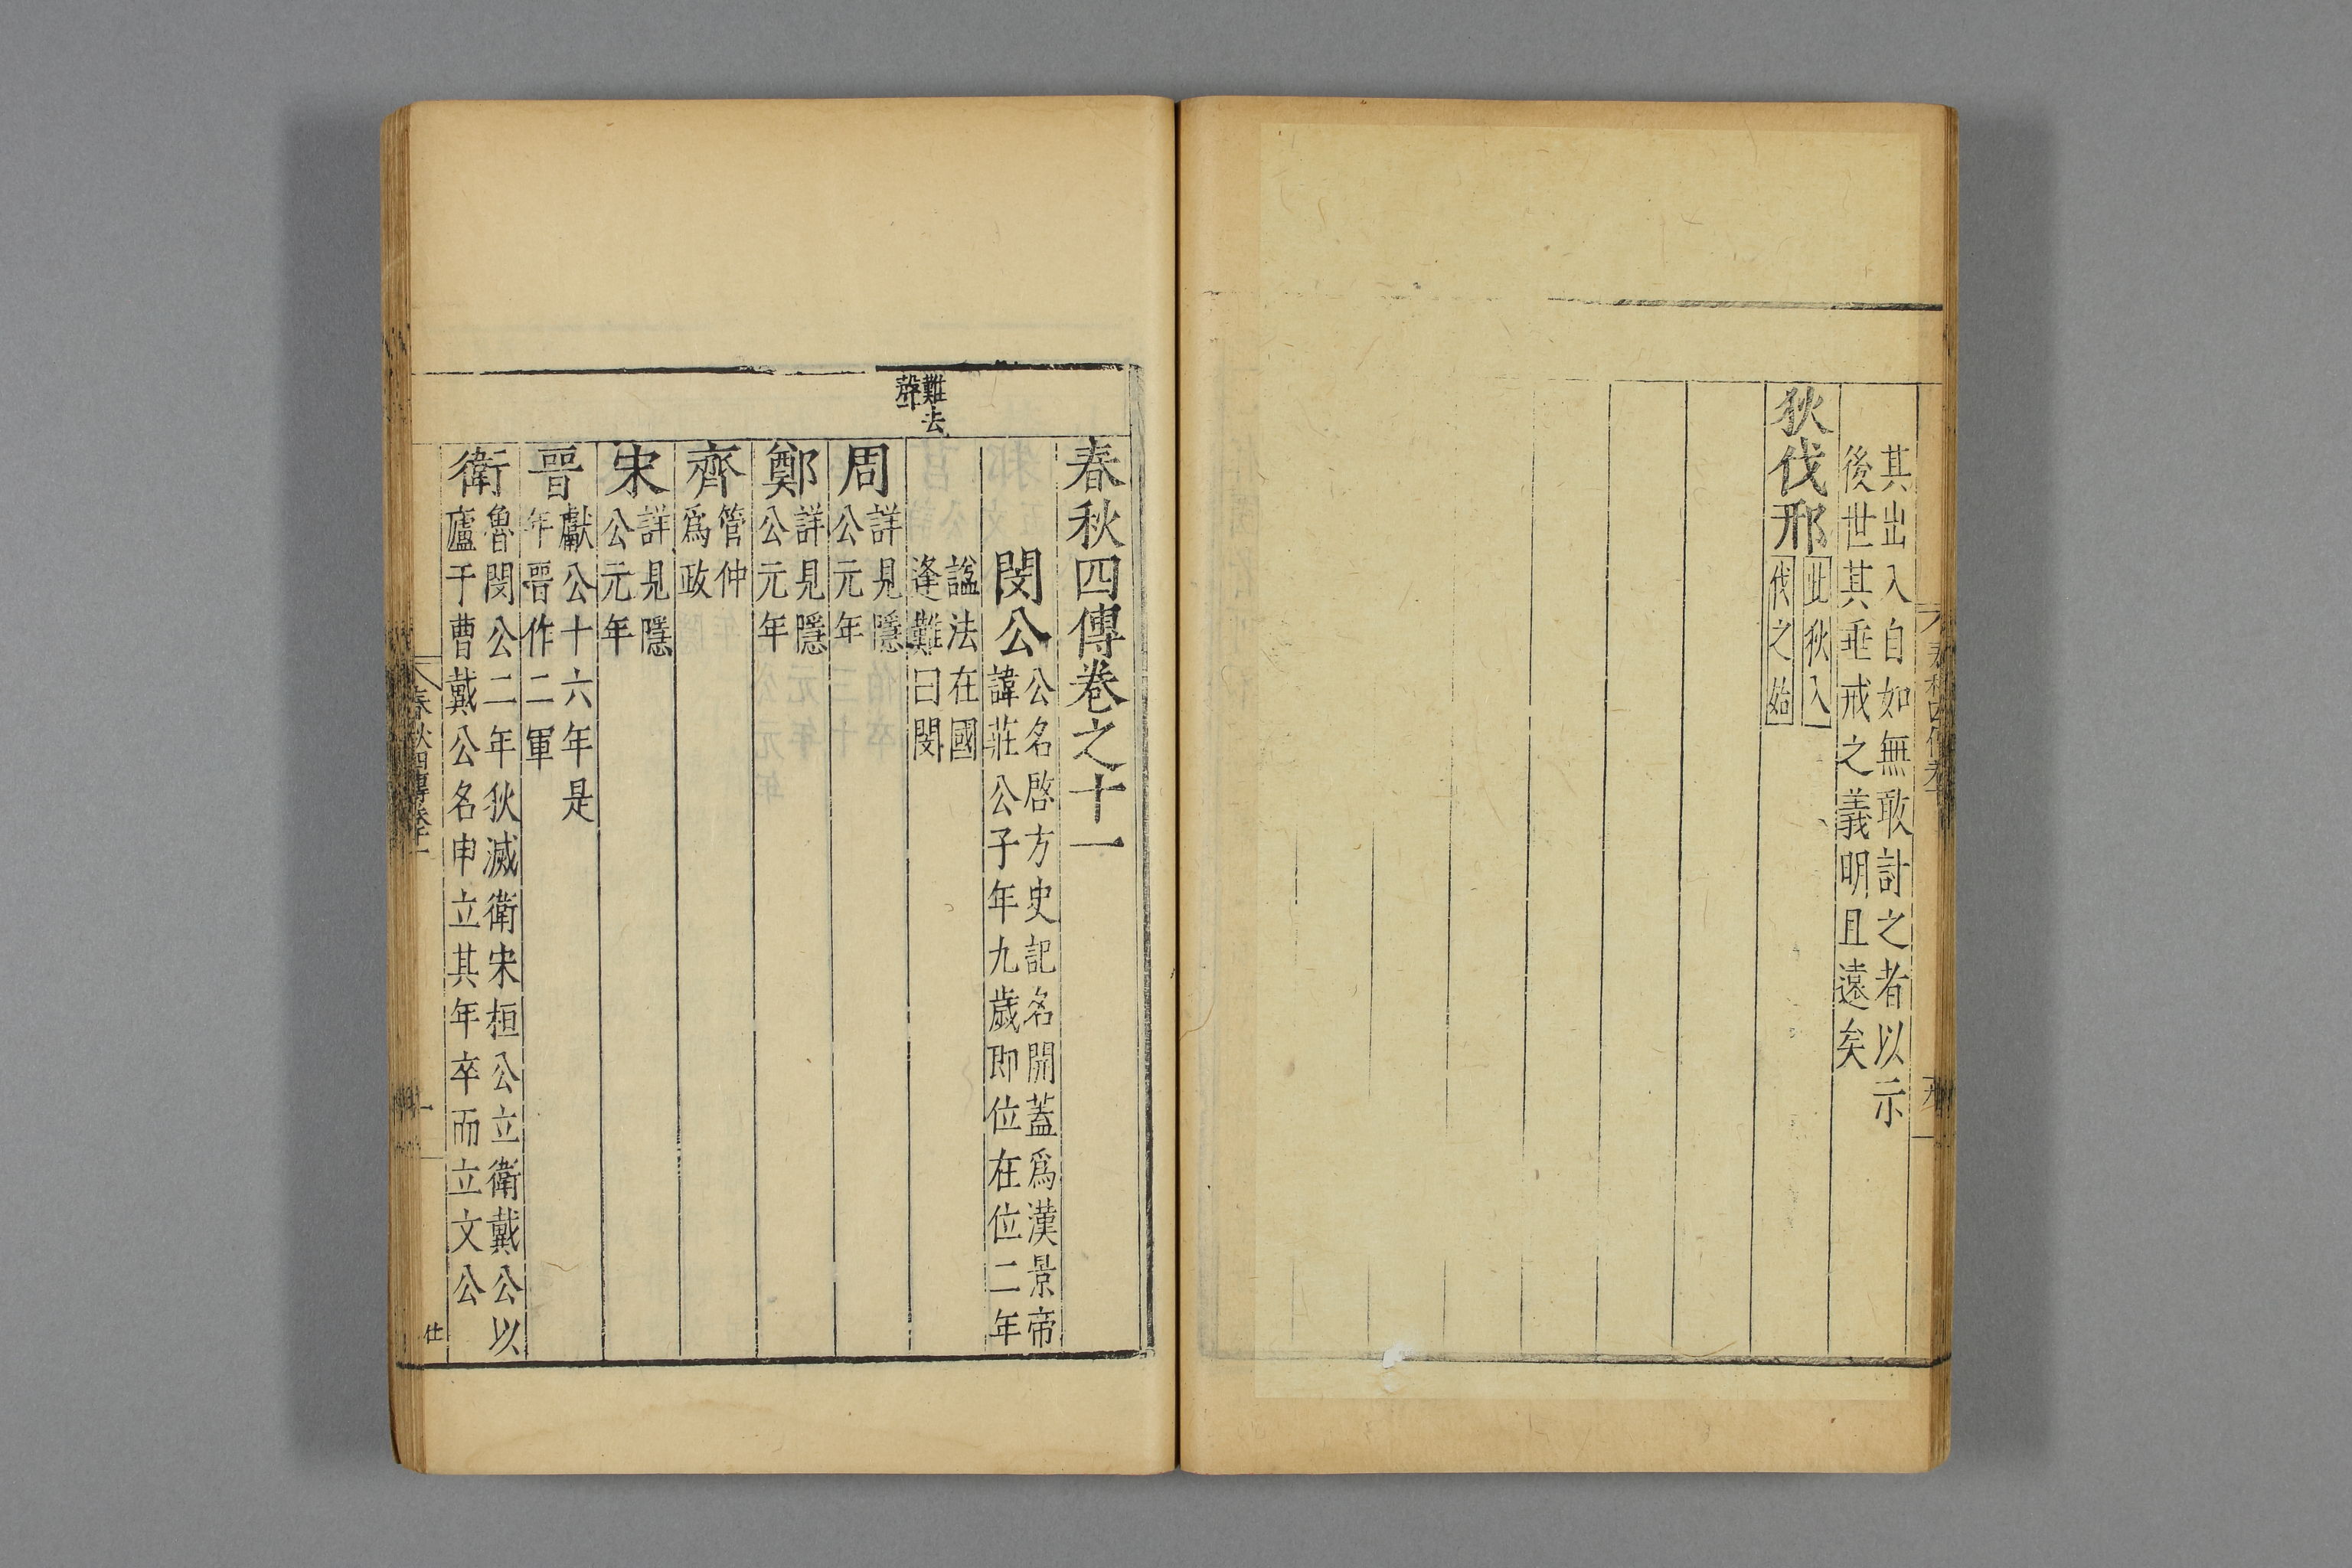 其出入自如無敢計之者以示
後世其垂戒之義明且遠矣
狄伐邢
此狄入
伐之始
春秋四傳卷之十一
閔公
公名啓方史記名開蓋爲漢景帝
諱莊公子年九歲即位在位二年
諡法在國
逢難曰閔
難去
聲
周
詳見隱
公元年
鄭
詳見隱
公元年
齊
管仲
爲政
宋
詳見隱
公元年
晉
獻公十六年是
年晉作二軍
衛
魯閔公二年狄滅衛宋桓公立衛戴公以
廬于曹戴公名申立其年卒而立文公
春秋四傳卷十一
一